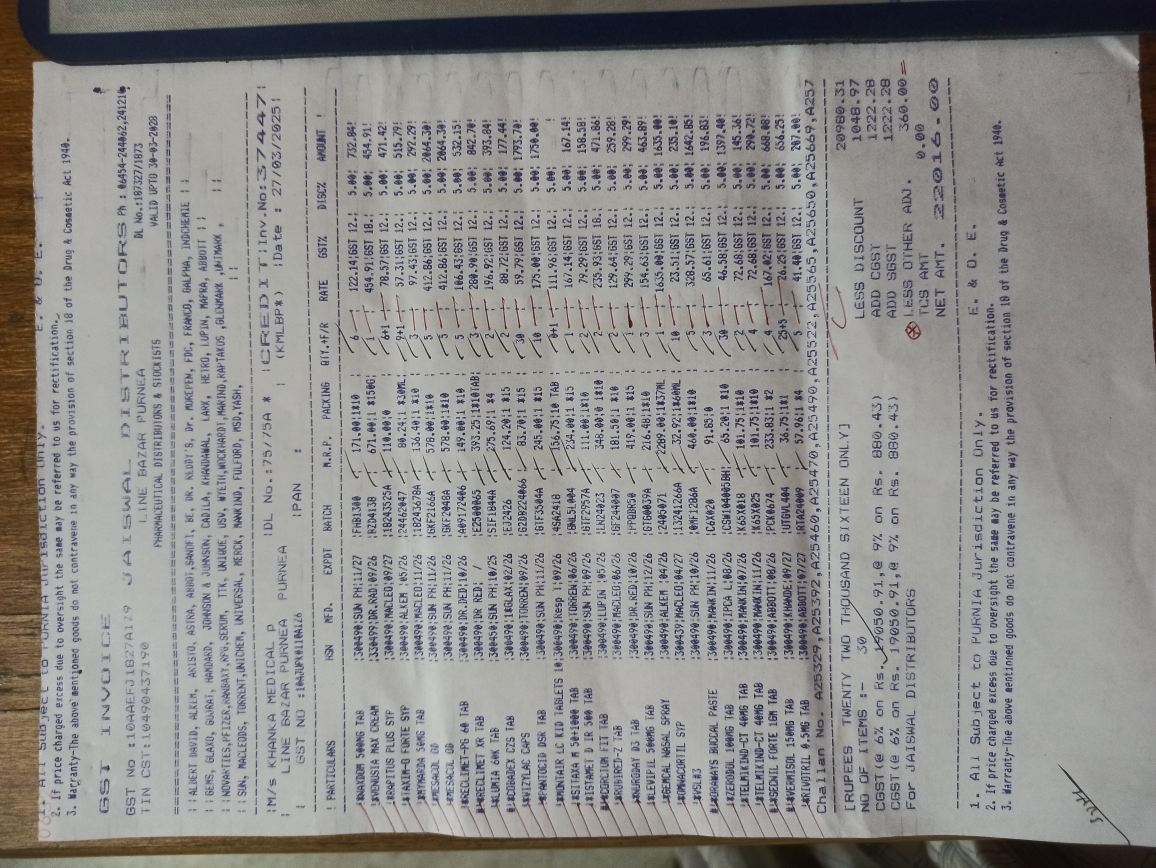 1. All Subject to PURNIA Jurisdiction Only. E. & O. E.
2. If price charged excess due to oversight the same may be referred to us for rectification.
3. Warranty-The above mentioned goods do not contravene in any way the provision of section 18 of the Drug & Cosmetic Act 1940.
GST INVOICE JAISWAL DISTRIBUTORS Ph : 06454-244062,241216
GST No :10AAEFJ1827A1Z9 LINE BAZAR PURNEA DL No.:1873Z7/1873
TIN CST:10490437190 PHARMACEUTICAL DISTRIBUTORS & STOCKISTS VALID UPTO 30-03-2028
::ALBERT DAVID, ALKEM, ARISTO, ASTRA, ABBOT,SANOFI, BE, DR. REDDY'S, Dr. MUREPEN, FDC, FRANCO, GALPHA, INDCHEMIE ::
:GEMS, GLAXO, GUJRAT, HANDARD, JOHNSON & JOHNSON, CADILLA, KHANDAWAL, LARK, HETRO, LUPIN, MAPRA, ABBOTT ::
:NOVARTIES,PFIZER,RANBAXY,RPG,SERUM, TTK, UNIQUE, USV, WYETH,WOCKHARDT,MAKIND,RAPTAKOS,GLENMARK,UNIMARK, ::
:SUN, MACLEODS, TORRENT,UNICHEM, UNIVERSAL, MERCK, MANKIND, FULFORD, MSD,YASH, ::
:M/s KHANKA MEDICAL P :DL No.:757/75A * :CREDIT:Inv.No:37447:
: LINE BAZAR PURNEA PURNEA : (KMLBP*) :Date : 27/03/2025:
: GST NO : :PAN :
! PARTICULARS HSN MFD. EXPDT BATCH M.R.P. PACKING QTY.+F/R RATE GST% DISC% AMOUNT !
NAXDOM 500MG TAB :300490:SUN PH:11/27 :FNB1300 171.00:1*10 6 122.14:GST 12.: 5.00: 732.84:
VENUSIA MAX CREAM :330499:DR.RAD:09/26 :BZD4138 671.00:1 *150G: 1 454.91:GST 18.: 5.00: 454.91:
RAPITUS PLUS SYP :300490:MACLEO:09/27 :1B24J325A 110.00 6+1 78.57:GST 12.: 5.00: 471.42:
TAXIM-O FORTE SYP :300490:ALKEM :05/26 :24462047 80.24:1 *30ML 9+1 57.31:GST 12.: 5.00: 515.79:
MYMARDA 50MG TAB :300490:MACLEO:11/26 :1B24J678A 136.40:1*10 3 97.43:GST 12.: 5.00: 292.29:
MESACOL OD :300490:SUN PH:11/26 :GKF2166A 578.00:1*10 5 412.86:GST 12.: 5.00: 2064.30:
MESACOL OD :300490:SUN PH:11/26 :GKF2048A 578.00:1*10 5 412.86:GST 12.: 5.00: 2064.30:
RECLIMET-PG 60 TAB :300490:DR.RED:10/26 :A09172406 149.00:1 *10 5 106.43:GST 12.: 5.00: 532.15:
RECLIMET XR TAB :300490:DR RED: / :E2500065 393.25:1*10TAB: 3 280.90:GST 12.: 5.00: 842.70:
LUMIA 60K TAB :300450:SUN PH:10/25 :SIF1844A 275.69:1 *4 2 196.92:GST 12.: 5.00: 393.84:
COBADEX CZS TAB :300490:I#GLAX:02/26 :EJ2426 124.20:1 *15 2 88.72:GST 12.: 5.00: 177.44:
VIZYLAC CAPS :300490:TORREN:09/26 :GZDB224066 83.70:1 *15 30 59.79:GST 12.: 5.00: 1793.70:
PANTOCID DSR TAB :300490:SUN PH:11/26 :GTF3504A 245.00:1 *15 10 175.00:GST 12.: 5.00: 1750.00:
MONTAIR LC KID TABLETS 10:300490:Resp T:09/26 :4SA2418 156.75:10 TAB 0+1 111.96:GST 12.: 5.00: !
SITAXA M 50+1000 TAB :300490:TORREN:06/26 :BWL5L004 234.00:1 *15 1 167.14:GST 12.: 5.00: 167.14:
ISTAMET D IR 500 TAB :300490:SUN PH:09/26 :BTF2957A 111.00:1*10 2 79.29:GST 12.: 5.00: 158.58:
CORCIUM FIT TAB :300490:LUPIN :05/26 :LN24023 348.00:1*10 2 235.93:GST 18.: 5.00: 471.86:
RUBIRED-Z TAB :300490:MACLEO:06/26 :BGF244007 181.50:1 *10 2 129.64:GST 12.: 5.00: 259.28:
NURODAY D3 TAB :300490:DR.RED:10/26 :PPBDR50 419.00:1 *15 1 299.29:GST 12.: 5.00: 299.29:
LEVIPIL 500MG TAB :300490:SUN PH:12/26 :GTG0039A 216.48:1*10 3 154.63:GST 12.: 5.00: 463.89:
GEMCAL NASAL SPRAY :300490:ALKEM :04/26 :2405071 2289.00:1*37ML 1 1635.00:GST 12.: 5.00: 1635.00:
OMNACORTIL SYP :300439:MACLEO:04/27 :13241266A 32.92:1*60ML 10 23.51:GST 12.: 5.00: 235.10:
VSL#3 :300490:SUN PH:10/26 :0MF1286A 460.00:1*10 5 328.57:GST 12.: 5.00: 1642.85:
ORAWAYS BUCCAL PASTE :300490:MANKIN:11/26 :C6X020 91.85:10 3 65.61:GST 12.: 5.00: 196.83:
ZERODOL 100MG TAB :300490:IPCA L:08/26 :CSW104005BH: 65.20:1 *10 30 46.58:GST 12.: 5.00: 1397.40:
TELMIKIND-CT 40MG TAB :300490:MANKIN:07/26 :K65X018 101.75:1*10 2 72.68:GST 12.: 5.00: 145.36:
TELMIKIND-CT 40MG TAB :300490:MANKIN:11/26 :K65X025 101.75:1*10 4 72.68:GST 12.: 5.00: 290.72:
SECNIL FORTE 1GM TAB :300490:ABBOTT:08/26 :PCK0674 233.83:1 *2 4 167.02:GST 12.: 5.00: 668.08:
VERMISOL 150MG TAB :300490:KHANDE:09/27 :UTGVL404 36.75:1*1 25+5 26.25:GST 12.: 5.00: 656.25:
RIVOTRIL 0.5MG TAB :300490:ABBOTT:07/27 :RTA24009 57.96:1 *4 5 41.40:GST 12.: 5.00: 207.00:
Challan No. A25329,A25392,A25460,A25470,A25490,A25522,A25565,A25650,A25669,A257
20980.31
[RUPEES TWENTY TWO THOUSAND SIXTEEN ONLY] LESS DISCOUNT 1048.97
NO OF ITEMS :- 30 ADD CGST 1222.28
CGST(@ 6% on Rs. 19050.91,@ 9% on Rs. 880.43) ADD SGST 1222.28
SGST(@ 6% on Rs. 19050.91,@ 9% on Rs. 880.43) LESS OTHER ADJ. 360.00
For JAISWAL DISTRIBUTORS TCS AMT 0.00
NET AMT. 22016.00
1. All Subject to PURNIA Jurisdiction Only. E. & O. E.
2. If price charged excess due to oversight the same may be referred to us for rectification.
3. Warranty-The above mentioned goods do not contravene in any way the provision of section 18 of the Drug & Cosmetic Act 1940.